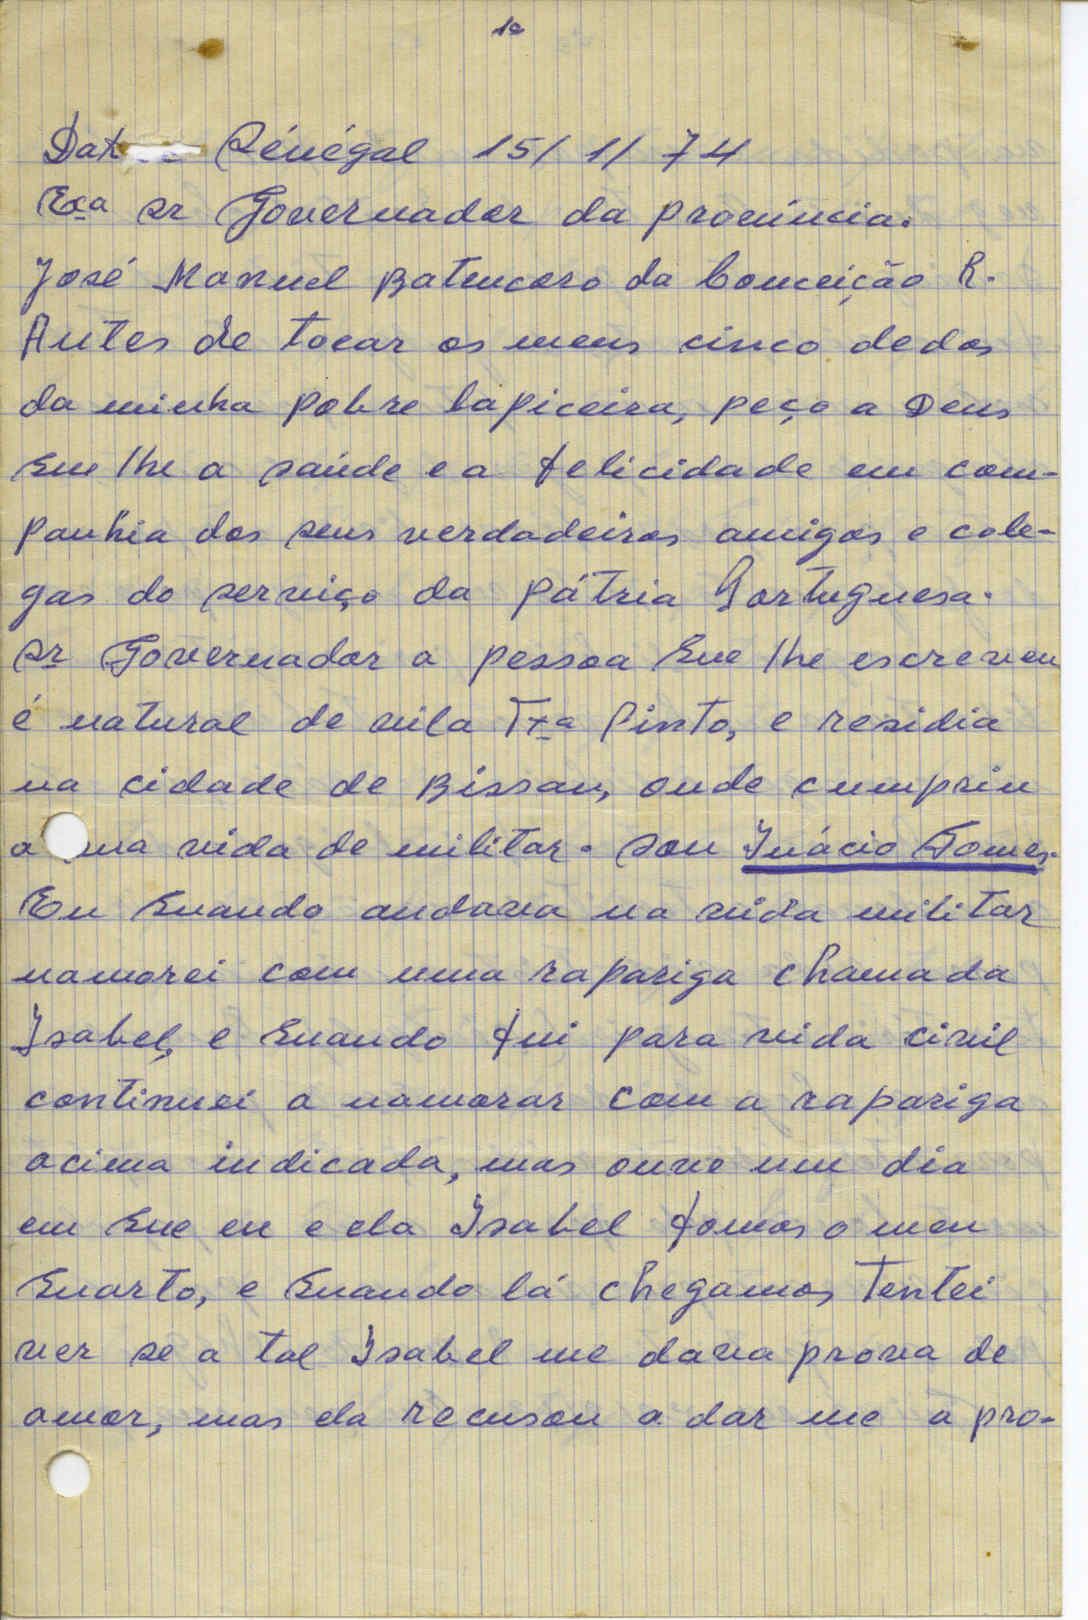 1º
Dak Sénégal 15/1/74
Exa sr Governador da província.
José Manuel Batencoro da Conceição R.
Antes de tocar os meus cinco dedos
da minha pobre lapiceira, peço a Deus
que lhe a saúde e a felicidade em com-
panhia dos seus verdadeiros amigos e cole-
gas do serviço da pátria Portuguesa.
Sr Governador a pessoa que lhe escreveu
é natural de vila Txa Pinto, e residia
na cidade de Bissau, onde cumpriu
a sua vida de militar. Sou Inácio Gomes.
Eu quando andava na vida militar
namorei com uma rapariga chamada
Isabel, e quando fui para vida civil
continuei a namorar com a rapariga
acima indicada, mas ouve um dia
em que eu e ela Isabel fomos o meu
quarto, e quando lá chegamos tentei
ver se a tal Isabel me dava prova de
amor, mas ela recusou a dar me a pro-